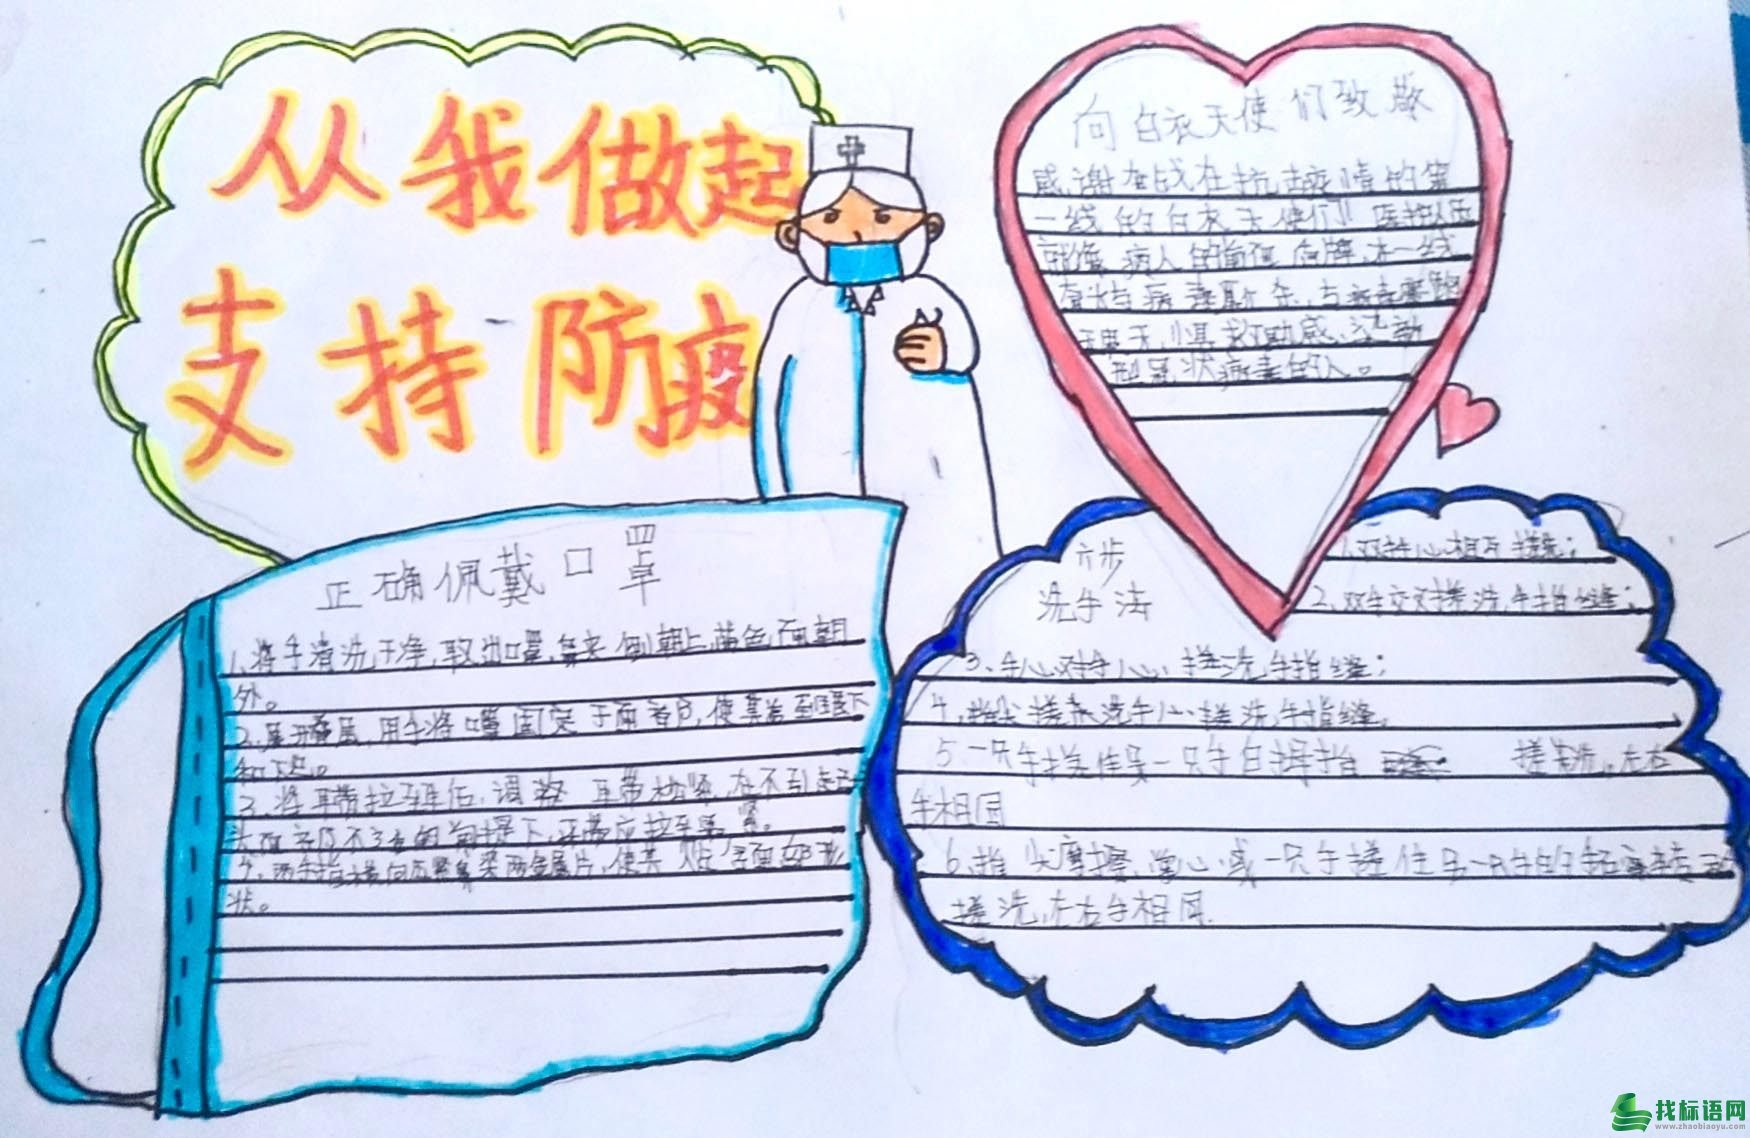 从我做起
支持防疫
向白衣天使们致敬
感谢奋战在抗击疫情的第
一线的白衣天使们!医护人员
就像病人的 盾牌,在一线
与病毒 ,与病毒赛跑
救助感染新
型冠状病毒的人。
正确佩戴口罩
1、将手清洗干净,取出口罩,鼻夹侧朝上,蓝色面朝
外。
2、展开 ,用手将口罩固定于 ,使其 至
和下巴。
3、将耳带拉至耳后,调整耳带松紧,在不引起
头面部 不 的前提下,耳带应拉至 紧。
4、两手指横向 鼻梁两 金属片,使其 全面部形
状。
六步
洗手法
1、双手心相互搓洗;
2、双手交叉搓洗手指缝;
3、手心对手心搓洗手指缝;
4、指尖搓 洗手心,搓洗手指缝。
5、一只手搓住另一只手的拇指 搓洗,左右
手相同
6、指尖摩擦掌心或一只手搓住另一只手的 转
搓洗,左右手相同.
找标语网
www.zhaobiaoyu.com